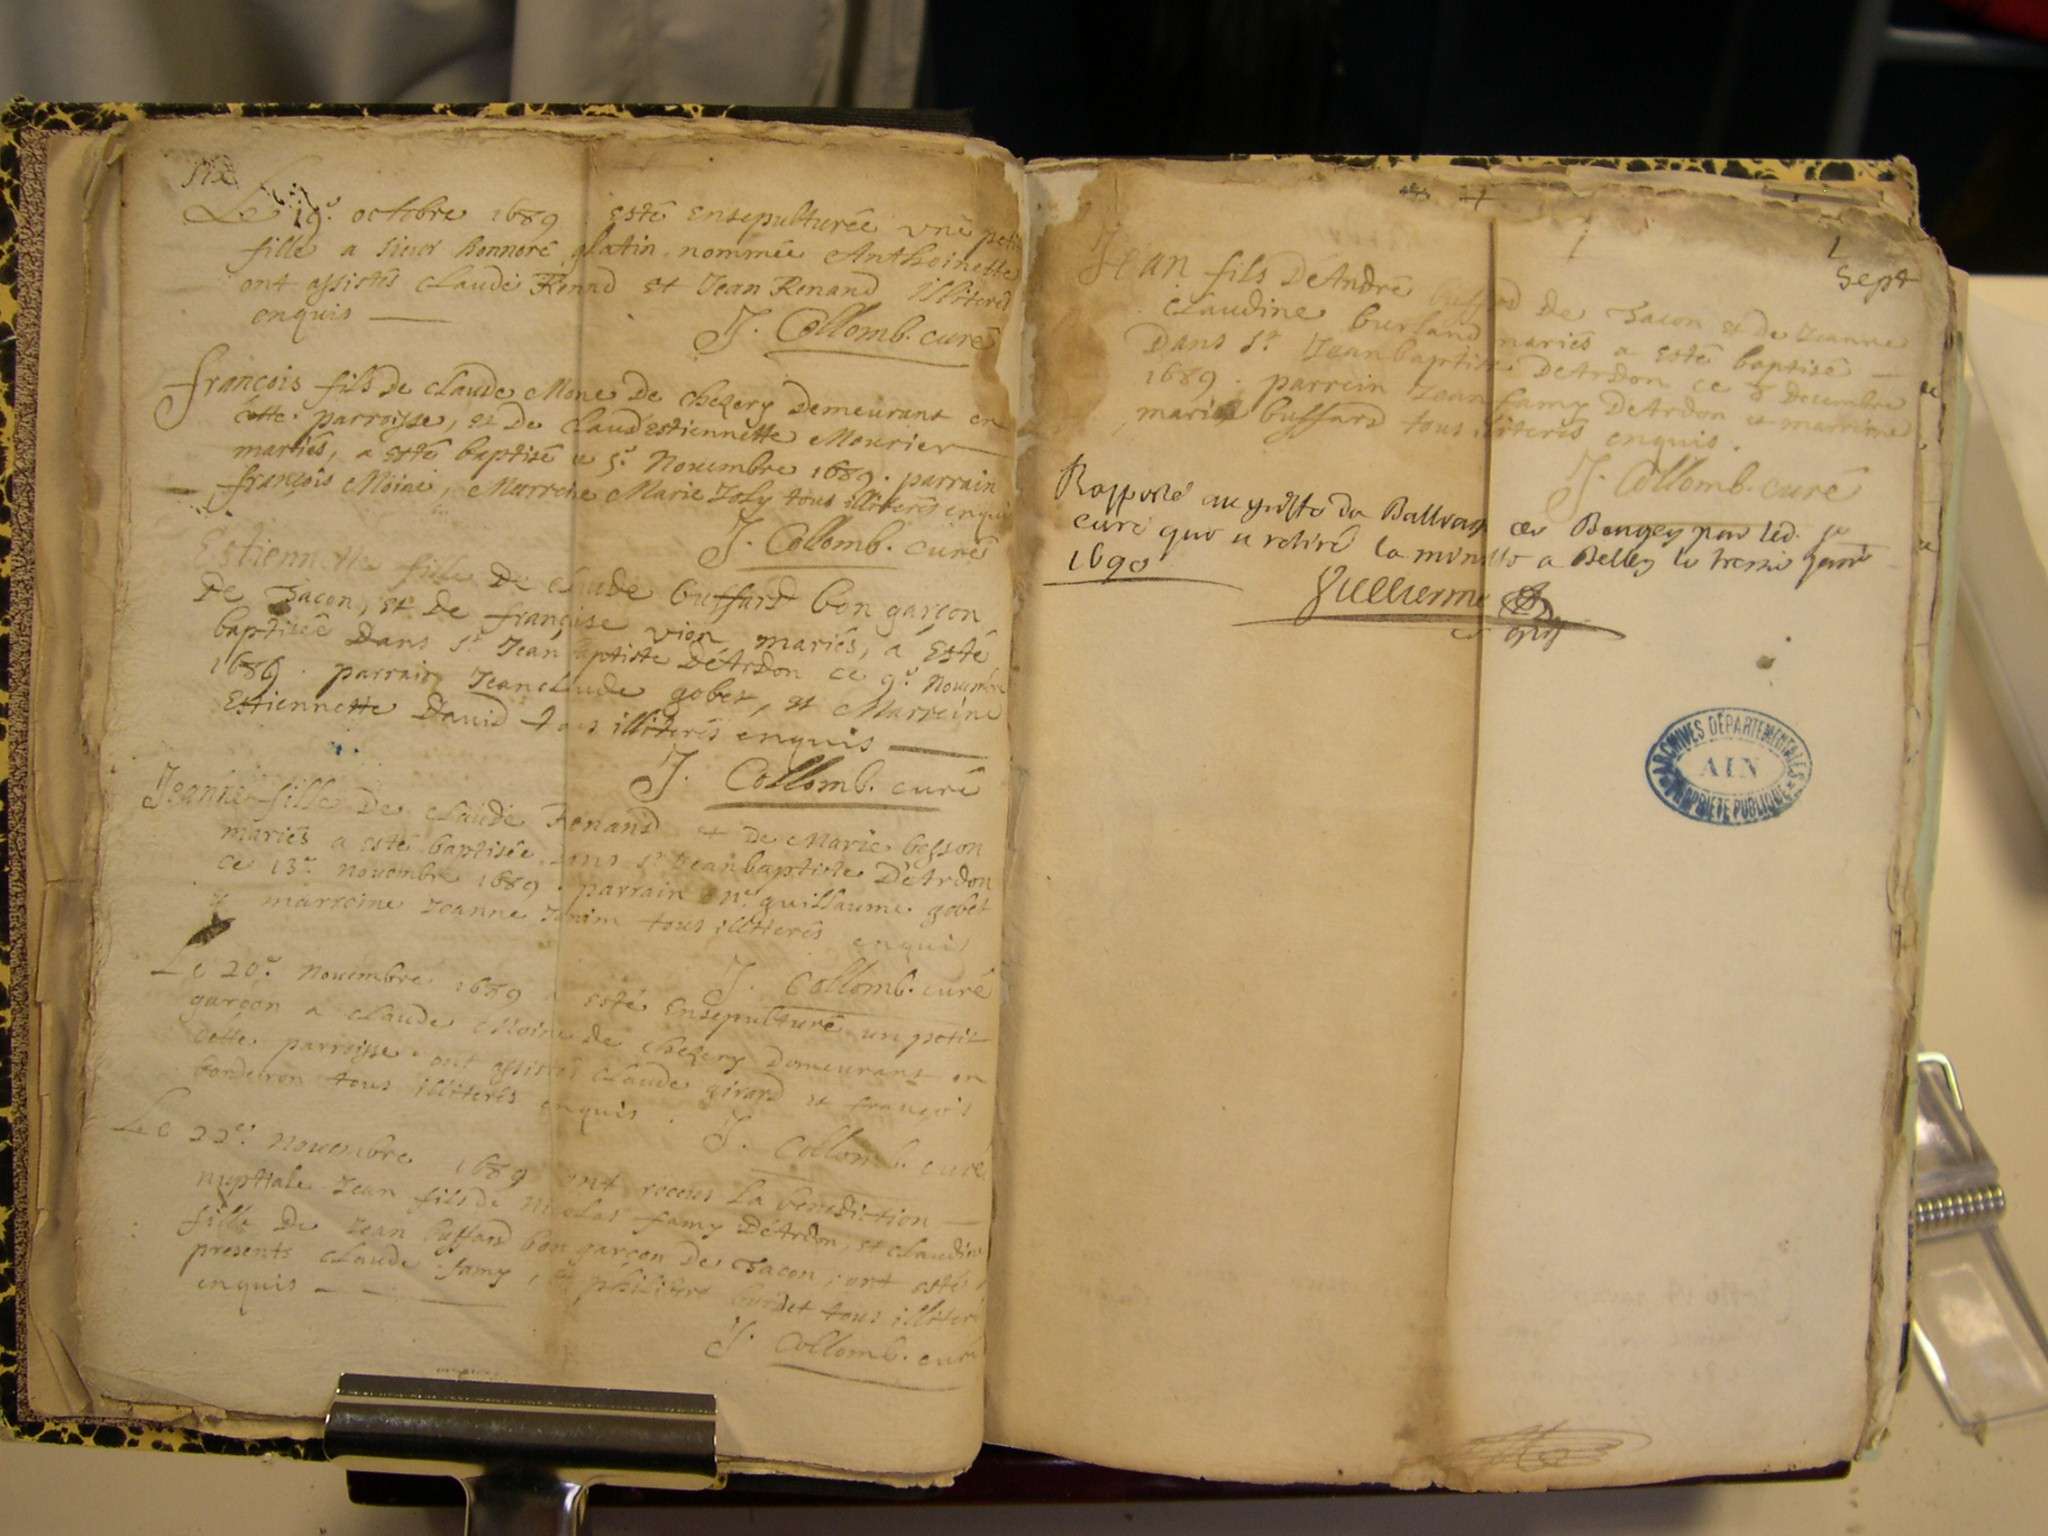 six
Le 19e. octobre 1689 esté ensepulturée une petit
fille a sieur honnoré glatin nommée Anthoinette
ont assistés Claude Renand et Jean Renand illiterés
enquis
J. Collomb. curé
françois fils de claude Mone de chezery demeurant en
cette parroisse, et de Claud'estiennette Mourier
mariés, a esté baptisé ce 5e. Novembre 1689. parrain
françois Moine, Marreine Marie Joly tous illiterés enquis
J. Collomb. curé
Estiennette fille de claude buffard bon garçon
de Tacon, et de françoise vion mariés, a esté
baptisée Dans st. Jean baptiste D'Ardon ce 9e. Novembre
1689. parrain Jeanclaude gobet, et Marreine
Estiennette David tous illiterés enquis
J. Collomb. curé
Jeanne fille De Claude Renand et De Marie besson
mariés a esté baptisée dans st. Jeanbaptiste D'Ardon
ce 13e. Novembre 1689. parrain guillaume gobet
et marreine Jeanne tous illiterés enquis
J. Collomb. curé
Le 20e. Novembre 1689 a esté Ensepulturé un petit
garçon a Claude Moine de chezery Demeurant en
cette parroisse. ont assistés Claude girard et françois
tous illiterés enquis.
J. Collomb. curé
Le 22e. Novembre 1689 ont receus la benediction
nuptiale Jean fils de Nicolas famy D'Ardon, et Claudine
fille De Jean buffard bon garçon De Tacon, ont esté
presents Claude famy, et tous illiterés
enquis
J. Collomb. curé
1
Sept
Jean fils D'André buffard De Tacon et de Jeanne
Claudine burland mariés a esté baptisé
Dans st. Jeanbaptiste D'Ardon ce 8 Decembre
1689. parrein Jean famy D'Ardon et marreine
marie buffard tous illiterés enquis.
J. Collomb. curé
Rapporté au greffe du Balliage de Bougey par led. sr
curé qui a retiré la minutte a Belley le janvr
1690
Guillierme
ARCHIVES DÉPARTEMENTALES
AIN
PROPRIÉTÉ PUBLIQUE